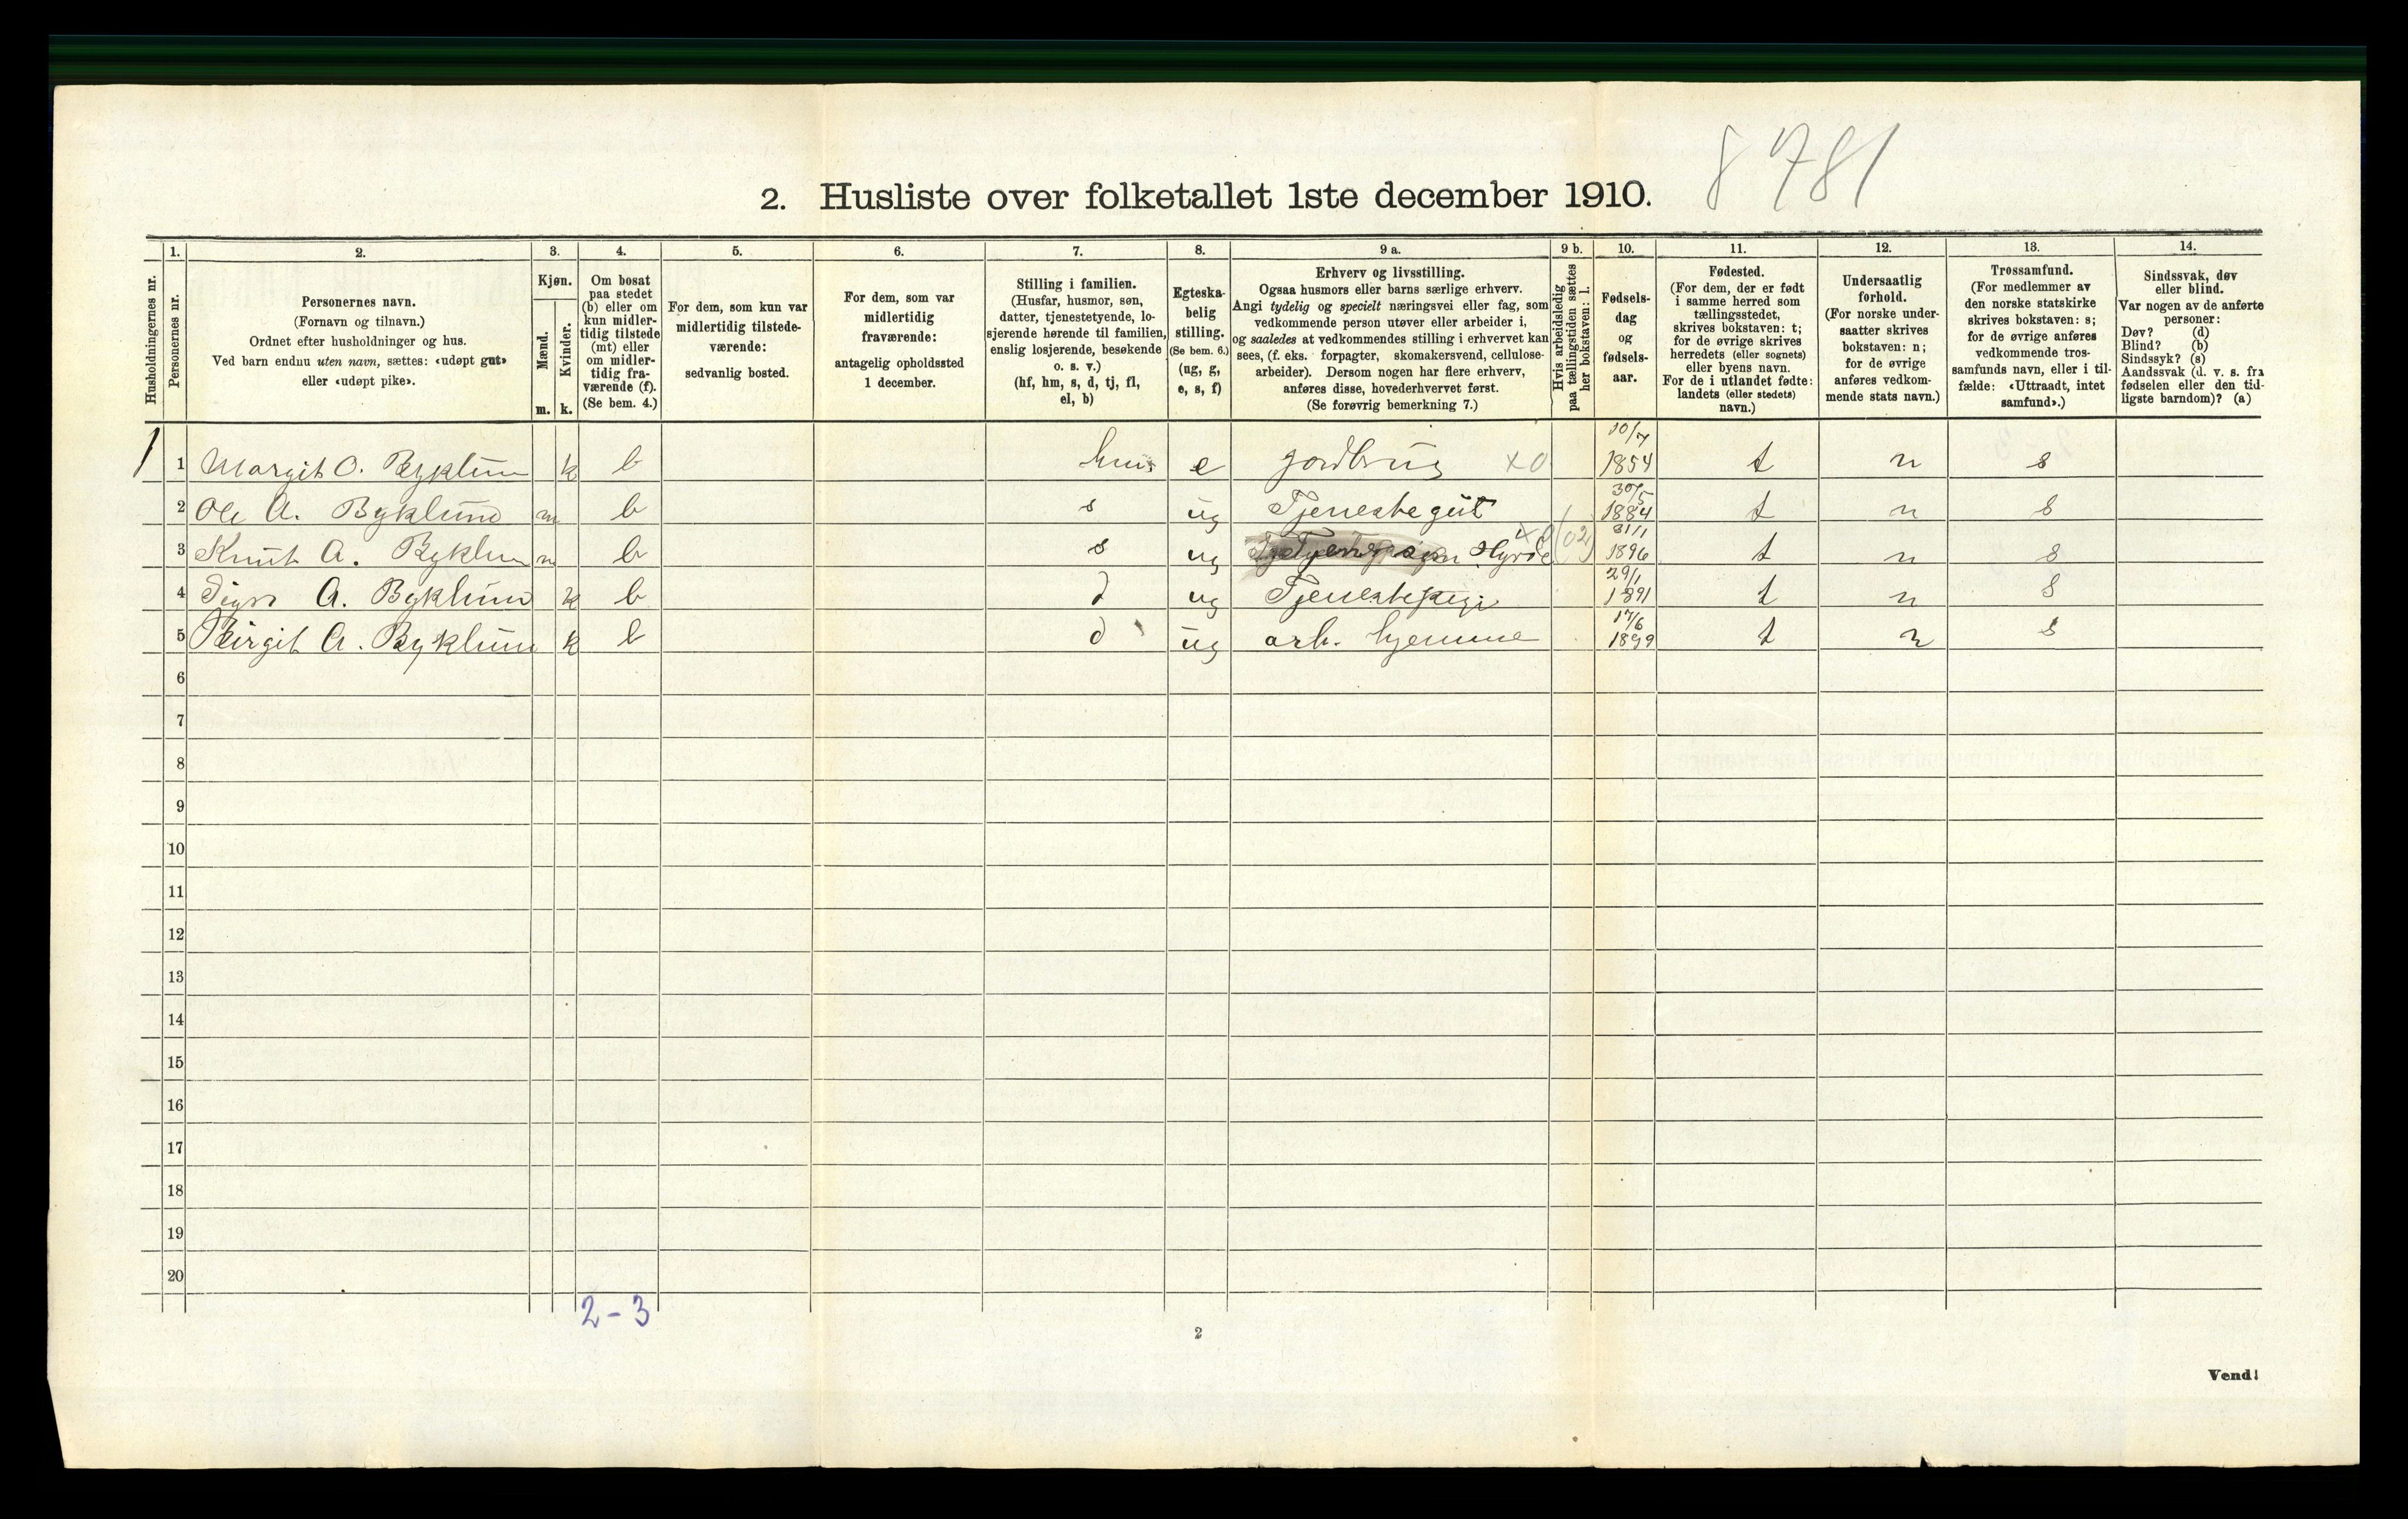 8 781
2. Husliste over folketallet 1ste december 1910.
Husholdningernes nr.
1.
Personernes nr.
2.
Personernes navn.
(Fornavn og tilnavn.)
Ordnet efter husholdninger og hus.
Ved barn endnu uten navn, sættes: «udøpt gut»
eller «udøpt pike».
3.
Kjøn.
Mænd.
Kvinder.
m. k.
4.
Om bosat
paa stedet
(b) eller om
kun midler-
tidig tilstede
(mt) eller
om midler-
tidig fra-
værende (f).
(Se bem. 4.)
5.
For dem, som kun var
midlertidig tilstede-
værende:
sedvanlig bosted.
6.
For dem, som var
midlertidig
fraværende:
antagelig opholdssted
1 december.
7.
Stilling i familien.
(Husfar, husmor, søn,
datter, tjenestetyende, lo-
sjerende hørende til familien,
enslig losjerende, besøkende
o. s. v.)
(hf, hm, s, d, tj, fl,
el, b)
8.
Egteska-
belig
stilling.
(Se bem. 6.)
(ug, g,
e, s, f)
9 a.
Erhverv og livsstilling.
Ogsaa husmors eller barns særlige erhverv.
Angi tydelig og specielt næringsvei eller fag, som
vedkommende person utøver eller arbeider i,
og saaledes at vedkommendes stilling i erhvervet kan
sees, (f. eks. forpagter, skomakersvend, cellulose-
arbeider). Dersom nogen har flere erhverv,
anføres disse, hovederhvervet først.
(Se forøvrig bemerkning 7.)
9 b.
Hvis arbeidsledig
paa tællingstiden sættes
her bokstaven: l.
10.
Fødsels-
dag
og
fødsels-
aar.
11.
Fødested.
(For dem, der er født
i samme herred som
tællingsstedet,
skrives bokstaven: t;
for de øvrige skrives
herredets (eller sognets)
eller byens navn.
For de i utlandet fødte:
landets (eller stedets)
navn.)
12.
Undersaatlig
forhold.
(For norske under-
saatter skrives
bokstaven: n;
for de øvrige
anføres vedkom-
mende stats navn.)
13.
Trossamfund.
(For medlemmer av
den norske statskirke
skrives bokstaven: s;
for de øvrige anføres
vedkommende tros-
samfunds navn, eller i til-
fælde: «Uttraadt, intet
samfund».)
14.
Sindssvak, døv
eller blind.
Var nogen av de anførte
personer:
Døv? (d)
Blind? (b)
Sindssyk? (s)
Aandssvak (d. v. s. fra
fødselen eller den tid-
ligste barndom)? (a)
1 1 Margit O. Byklum k b hm e jordbrug x0 10/7 1854 t n s
2 Ole A. Byklum m b s ug Tjenestegut 30/5 1884 t n s
3 Knut A. Byklum m b s ug x0 (02) 31/1 1896 t n s
4 A. Byklum k b d ug 29/1 1891 t n s
5 Birgit A. Byklum k b d ug arb. hjemme 17/6 1899 t n s
6
7
8
9
10
11
12
13
14
15
16
17
18
19
20
2-3
2
Vend!